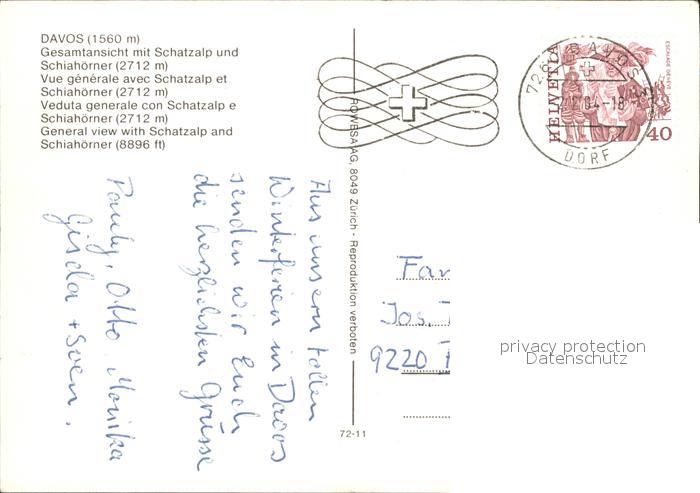 DAVOS (1560 m)
Gesamtansicht mit Schatzalp und
Schiahörner (2712 m)
Vue générale avec Schatzalp et
Schiahörner (2712 m)
Veduta generale con Schatzalp e
Schiahörner (2712 m)
General view with Schatzalp and
Schiahörner (8896 ft)
ROWESA AG, 8049 Zürich - Reproduktion verboten
72-11
HELVETIA
40
DAVOS
DORF
Aus unsern tollen
Winterferien in Davos
senden wir Euch
die herzlichsten Grüsse
Otto, Monika
Gisela + Sven.
Fam
Jos.
9220
privacy protection
Datenschutz